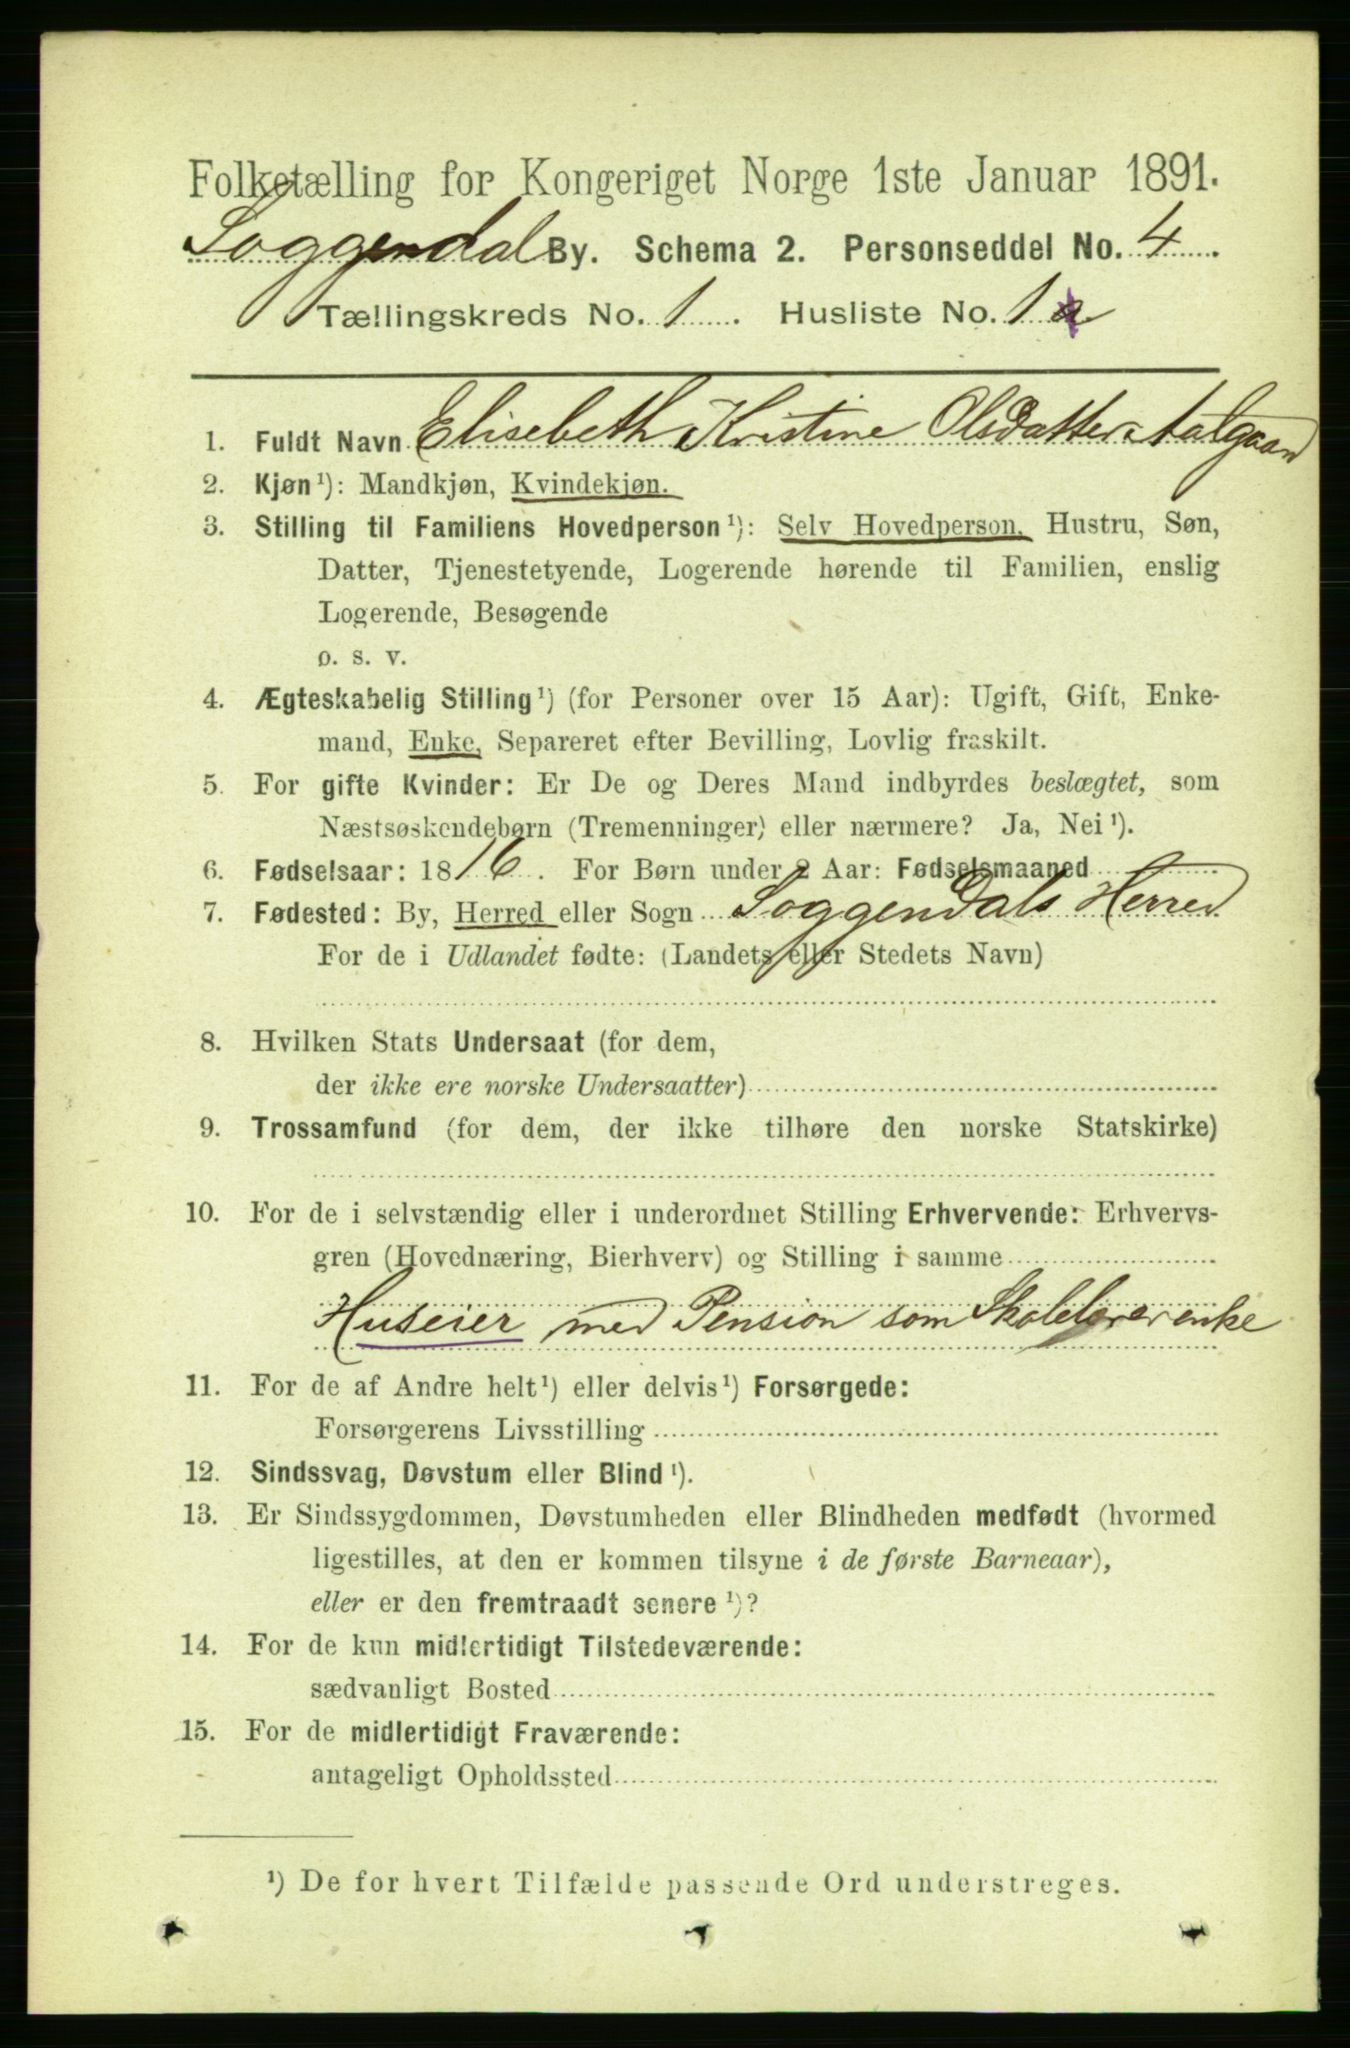 Folketælling for Kongeriget Norge 1ste Januar 1891.
Soggendal By. Schema 2. Personseddel No. 4
Tællingskreds No. 1. Husliste No. 1a
1. Fuldt Navn Elisebeth Kristine Olsdatter
2. Kjøn¹): Mandkjøn, Kvindekjøn.
3. Stilling til Familiens Hovedperson¹): Selv Hovedperson, Hustru, Søn,
Datter, Tjenestetyende, Logerende hørende til Familien, enslig
Logerende, Besøgende
o. s. v.
4. Ægteskabelig Stilling¹) (for Personer over 15 Aar): Ugift, Gift, Enke-
mand, Enke, Separeret efter Bevilling, Lovlig fraskilt.
5. For gifte Kvinder: Er De og Deres Mand indbyrdes beslægtet, som
Næstsøskendebørn (Tremenninger) eller nærmere? Ja, Nei¹).
6. Fødselsaar: 1816. For Børn under 2 Aar: Fødselsmaaned
7. Fødested: By, Herred eller Sogn Soggendals Herred
For de i Udlandet fødte: (Landets eller Stedets Navn)
8. Hvilken Stats Undersaat (for dem,
der ikke ere norske Undersaatter)
9. Trossamfund (for dem, der ikke tilhøre den norske Statskirke)
10. For de i selvstændig eller i underordnet Stilling Erhvervende: Erhvervs-
gren (Hovednæring, Bierhverv) og Stilling i samme
Huseier med Pension som Skolelærerenke
11. For de af Andre helt¹) eller delvis¹) Forsørgede:
Forsørgerens Livsstilling
12. Sindssvag, Døvstum eller Blind¹).
13. Er Sindssygdommen, Døvstumheden eller Blindheden medfødt (hvormed
ligestilles, at den er kommen tilsyne i de første Barneaar),
eller er den fremtraadt senere¹)?
14. For de kun midlertidigt Tilstedeværende:
sædvanligt Bosted
15. For de midlertidigt Fraværende:
antageligt Opholdssted
¹) De for hvert Tilfælde passende Ord understreges.